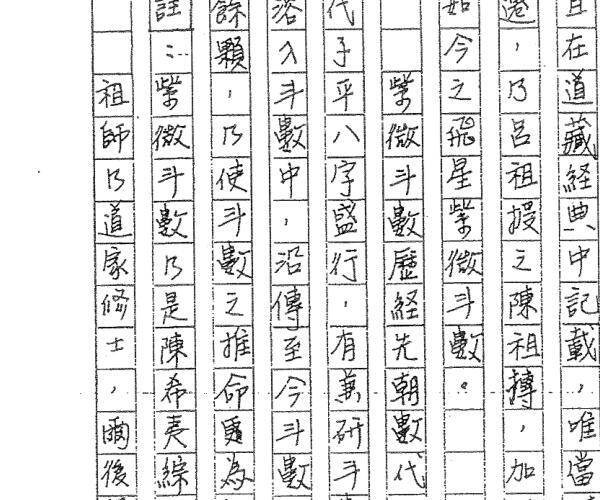 且在道藏経典中記載，唯當
港，乃呂祖授之陳祖摶，加
如今之飛星紫微斗數。
紫微斗數歷経先朝數代
代子平八字盛行，有兼研斗
溶入斗數中，沿傳至今斗數
餘顆，乃使斗數之推命更為
註：紫微斗數乃是陳希夷綜
祖師乃道家修士，爾後